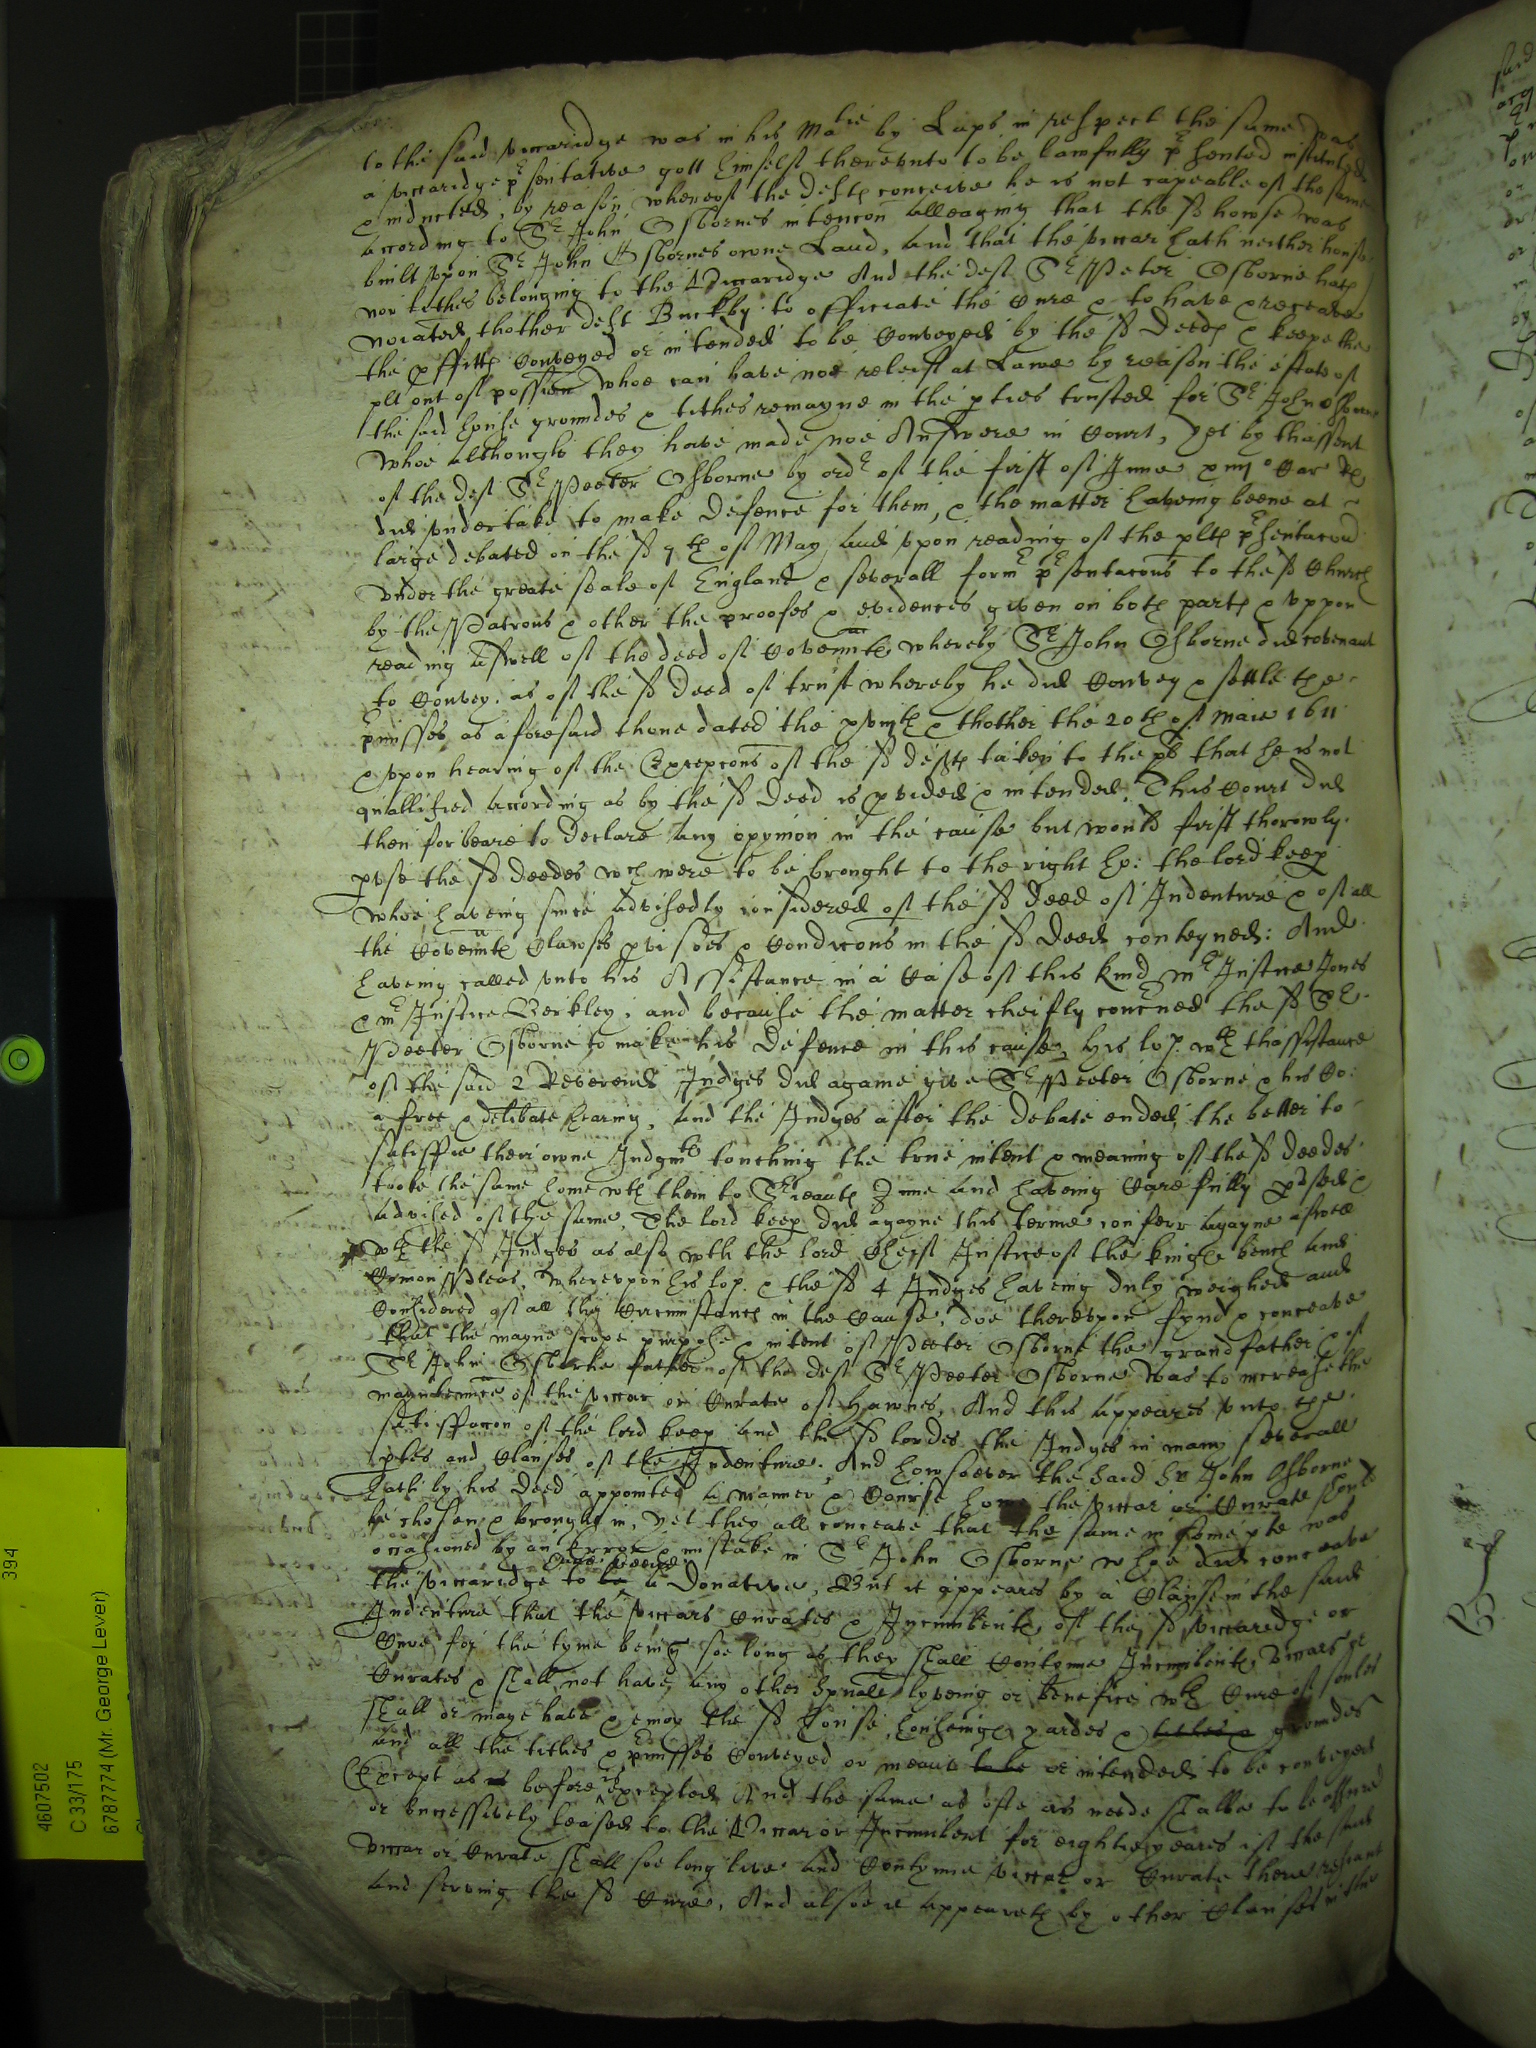 to the said viccaridge was in his Matie by Laps in respect the same was
a viccaridge pͬsentative gott himself thereunto to be lawfully pͬsented instituted
& inducted, by reason whereof the deftes conceive he is not capeable of the same
according to Sͬ John Osbornes intencon alleaging that the sd howse was
built upon Sͬ John Osbornes owne Land, and that the viccar hath neither house
nor tithes belonging to the Viccaridge And the deft Sͬ Peter Osborne hath
thother deft Buckby to officiate the Cure & to have & receave
the pffittes Conveyed or intended to be Conveyed by the sd Deede & keepe the
plt out of possion whoe can have noe releif at Lawe by reason the estate of
the said house groundes & tithes remayne in the pties trusted for Sͬ John Osborne
Whoe although they have made noe Answere in Court, yet by thassent
of the deft Sͬ Peeter Osborne by ordͬ of the first of June Car Rs
did undertake to make defence for them, & the matter haveing beene at
large debated on the sd 9th of May and upon reading of the pltes pͬsentacon
under the greate seale of England & severall formͬ pͬsentacons to the sd Church
by the Patrons & other the proofes & evidences given on both partes & uppon
reading aswell of the deed of Covennͣtes whereby Sͬ John Osborne did covenant
to Convey, as of the sd Deed of trust whereby he did Convey & settle the
pͬmisses as aforesaid thone dated the xviijth & thother the 20th of Maie 1611
& upon hearing of the Excepcons of the sd deftes taken to the plt that he is not
quallified according as by the sd Deed is pvided & intended, This Court did
then forbeare to declare any opynion in the cause but would first thorowly
pvse the sd deedes wch were to be brought to the right ho: the lord keep
Whoe haveing since advisedly considered of the sd Deed of Indenture & of all
the Covennͣtes Clawses pvisoes & Condicons in the sd Deed conteyned: And
haveing called unto his Assistance in a Case of this kind mͬ Justice Jones
& mͬ Justice Berkley, and because the matter cheifly concͬned the sd Sͬ
Peeter Osborne to make his Defence in this cause, His lop. wth thassistance
of the said 2 Reverend Judges did againe give Sͬ Peeter Osborne & his Co:
a free & delibate hearing, and the Judges after the debate ended, the better to
satisffie their owne Judgmts touching the true intent & meaning of the sd deedes
tooke the same home wth them to Sͬieantes Inne and haveing Carefully pvsed &
advised of the same, The lord keep did agayne this terme conferr agayne aswell
wth the sd Judges as also wth the lord Cheif Justice of the kinges bench and
Comon Pleas, Whereupon his lop. & the sd 4 Judges haveing duly weighed and
Considered of all the Circumstances in the Cause, doe thereupon fynd & conceave
that the mayne scope purpose & intent of Peeter Osborne the grandfather & of
Sͬ John Osborne father of the deft Sͬ Peeter Osborne was to increase the
mayntennͣce of the viccar or Curate of Hawnes, And this appeares unto the
satisffaccon of the lord keep and the sd lordes the Judges in many severall
ptes and Clauses of the Indenture. And howsoever the said Sr John Osborne
hath by his Deed appointed a manner & Course how the viccar or Curate should
be chosen & brought in, yet they all conceave that the same in some pte was
occasioned by an Error & mistake in Sͬ John Osborne whoe did conceave
the viccaridge to be a Donative, But it appeares by a Clause in the said
Indenture that the viccars Curates & Incumbentes of the sd viccaridge or
Cure for the tyme being soe long as they shall Contynue Incumbentes, Viccars or
Curates & shall not have any other spuall lyveing or benefice wth Cure of soules
shall or maye have & enioy the sd house, housheinge, yardes & tithes & groundes
and all the tithes & pͬmisses Conveyed or meant to be or intended to be conveyed
Except as is before excepted, And the same as ofte as neede shalbe to be assured
or successively leased to the Viccar or Incumbent for eightie yeares if the said
viccar or Curate shall soe long live and Contynue viccar or Curate there resiant
and serving the sd Cure, And alsoe it appeareth by other Clauses in the
394
4607502
C 33/175
6787774 (Mr. George Lever)